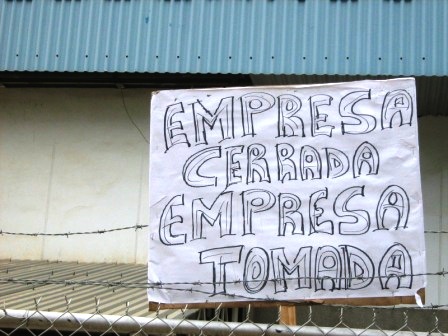 EMPRESA
CERRADA
EMPRESA
TOMADA